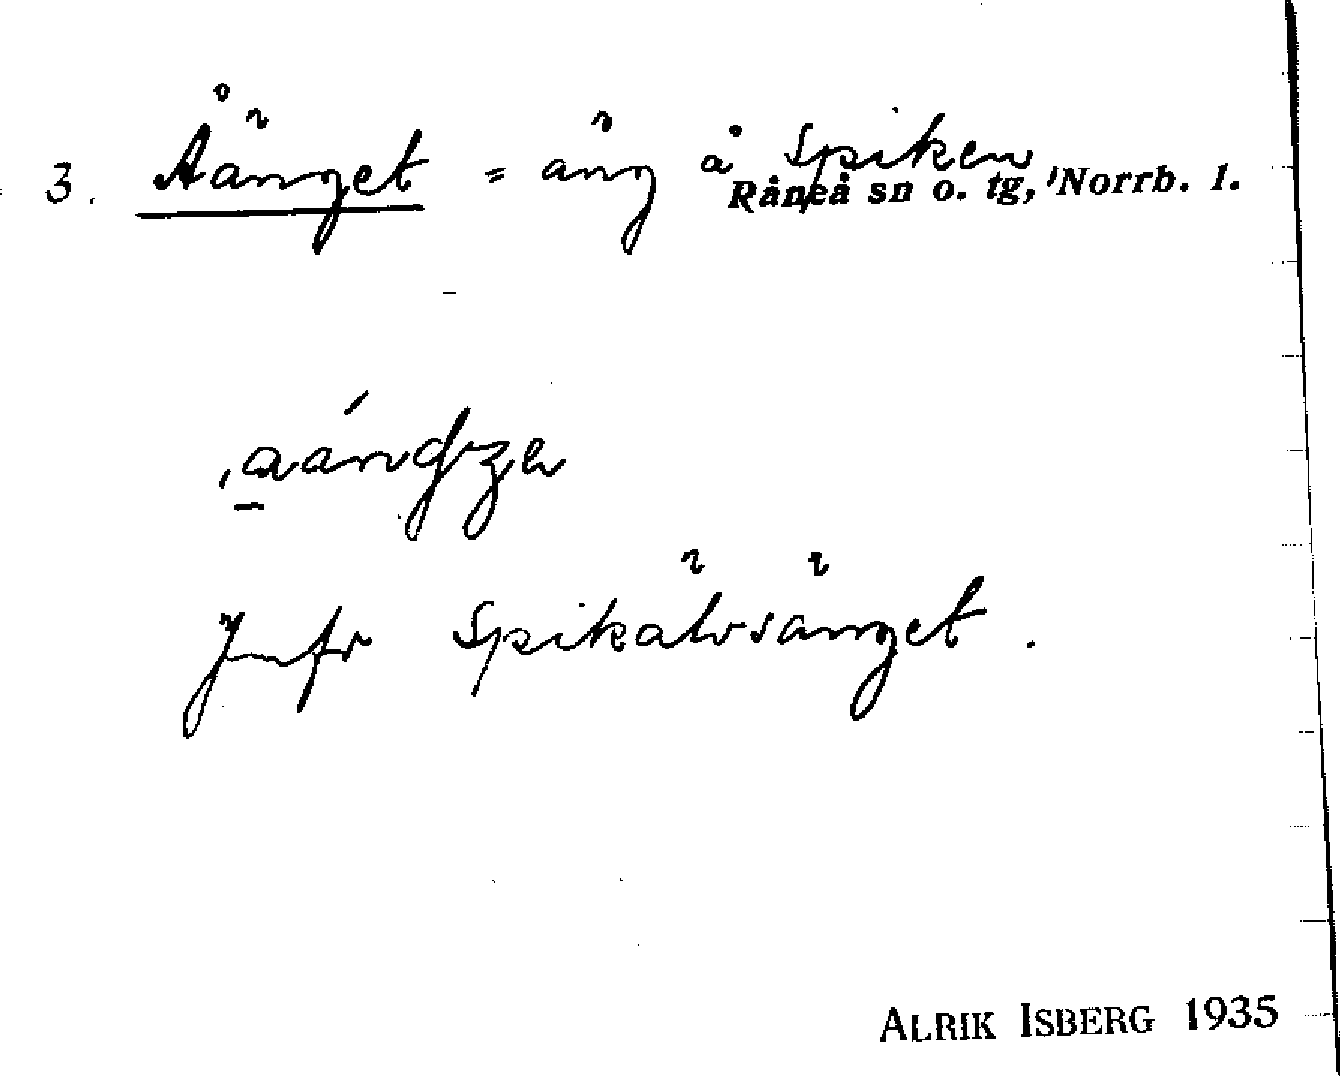 3. Åänget = äng å Spiken
Råneå sn o. tg, Norrb. l.
Jmfr Spikälvsänget.
ALRIK ISBERG 1935